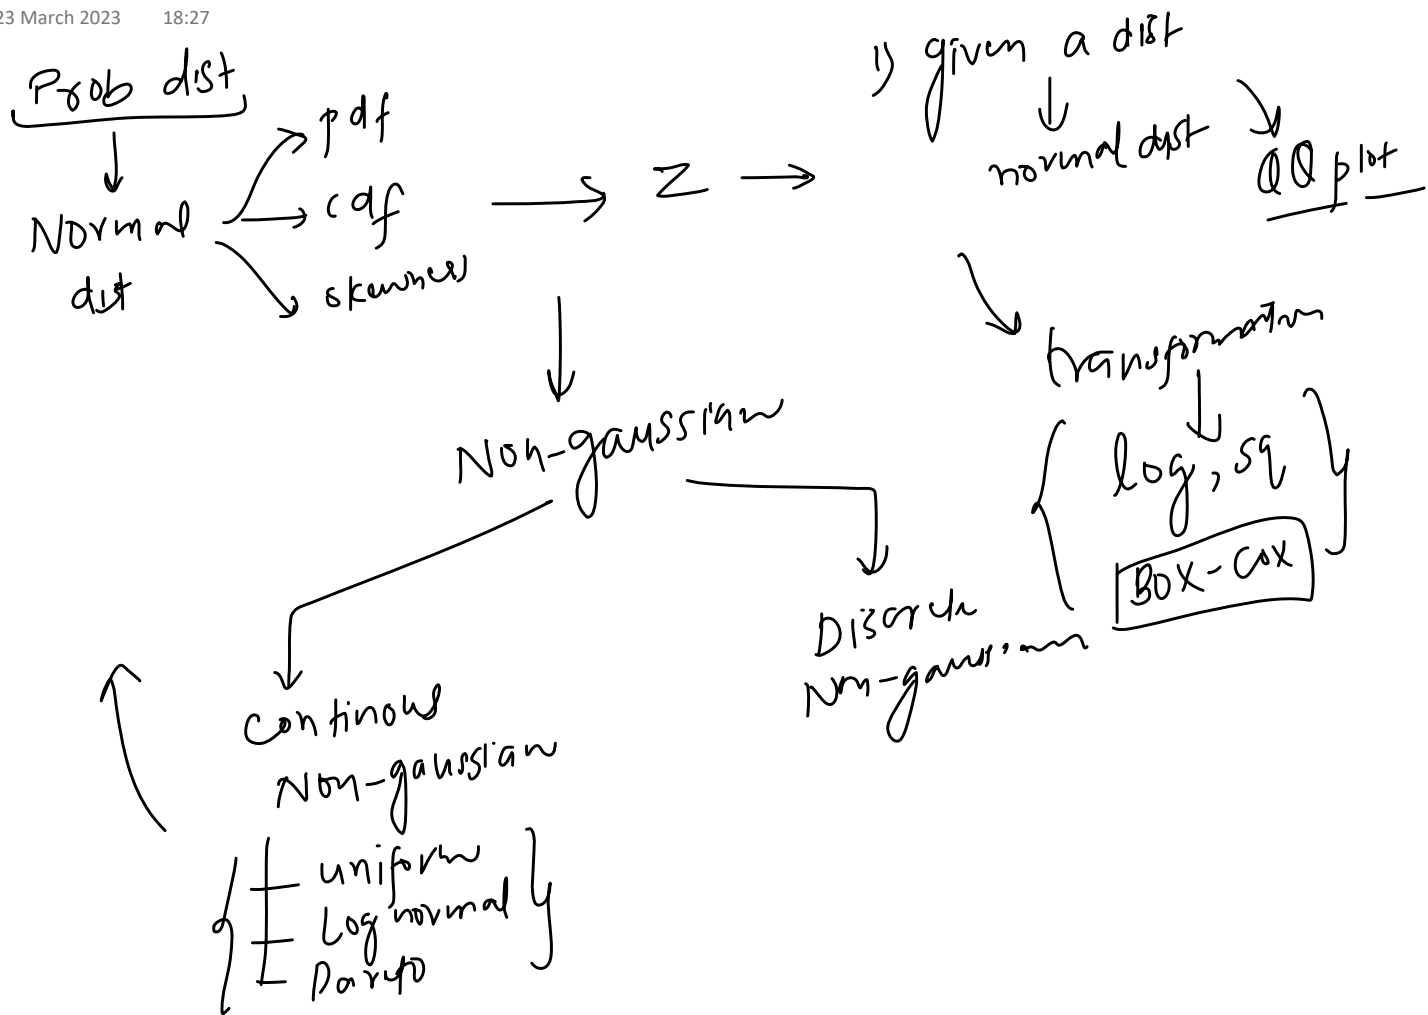 23 March 2023 18:27
Prob dist
Normal
dist
pdf
cdf
skewness
Z
1) given a dist
normal dist
QQ plot
transformation
log, sq
Box-Cox
Non-gaussian
Discrete
Non-gaussian
Continous
Non-gaussian
uniform
Log normal
Pareto